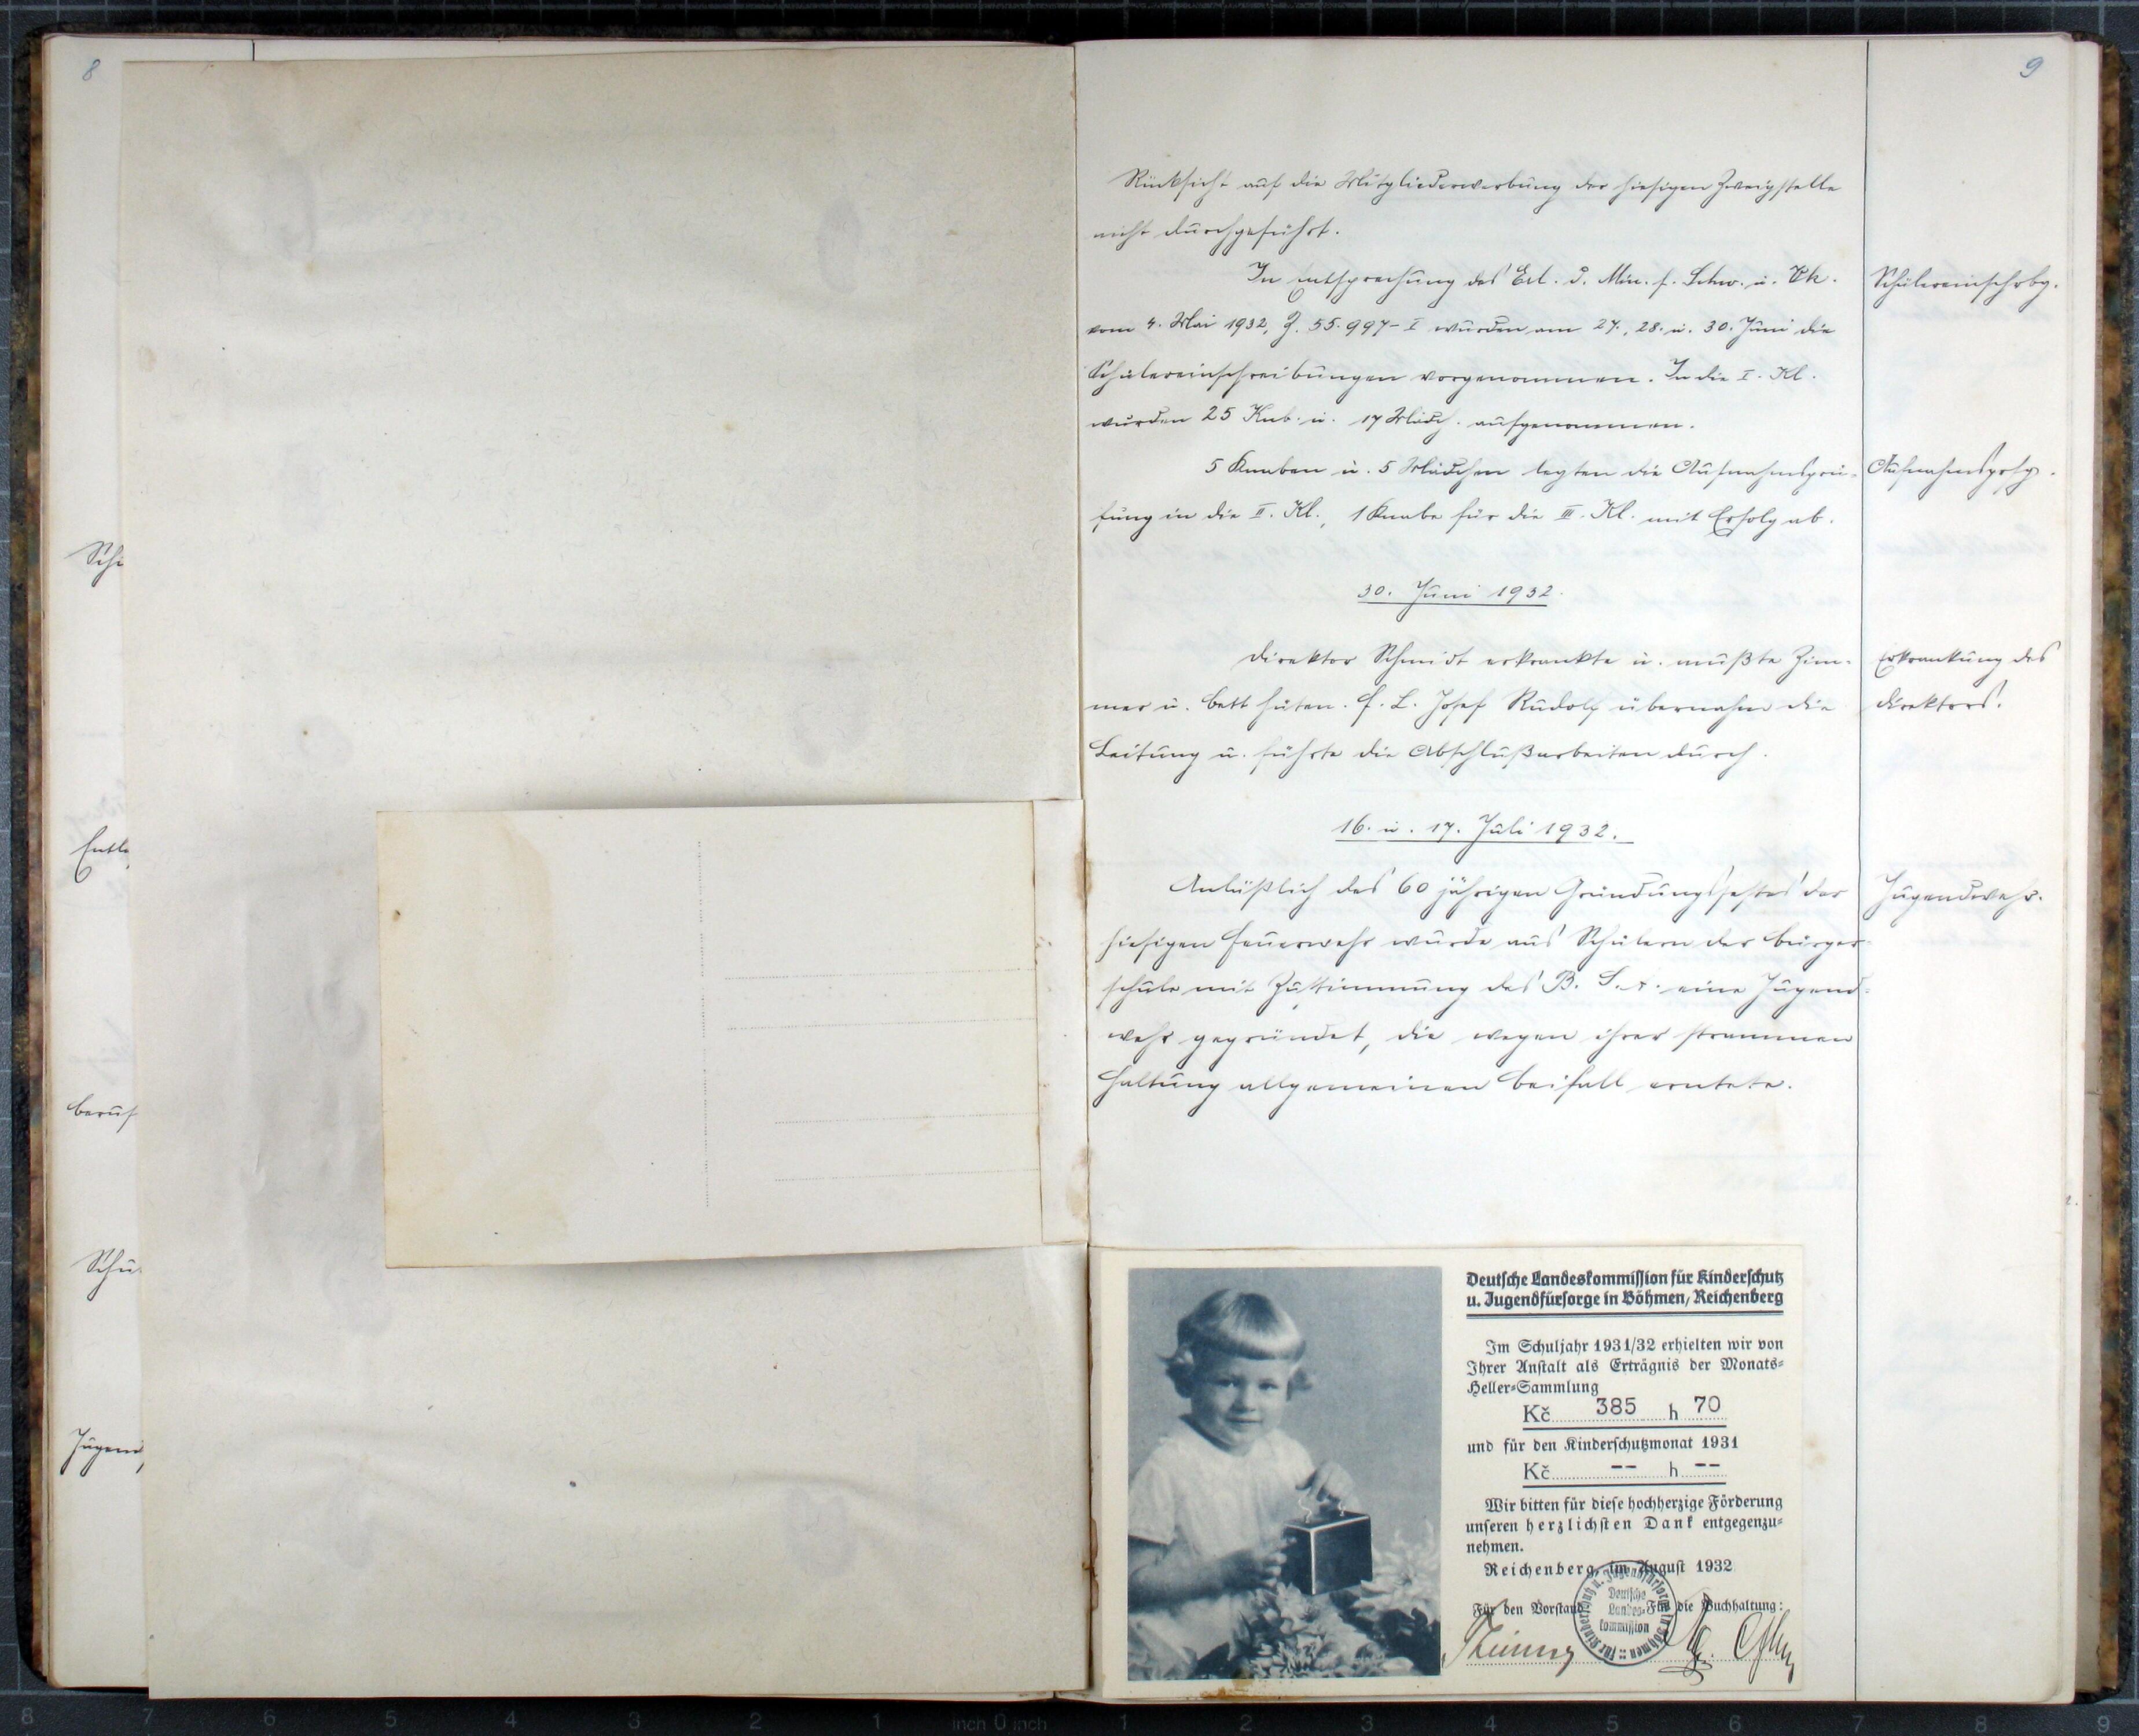 8
Schü
Entla
Beruf
Schu
Jugend
9
Rücksicht auf die Mitgliederwerbung der hiesigen Zweigstelle
nicht durchgeführt.
In Entsprechung des Erl. d. Min. f. Schw. u. Vk.
vom 4. Mai 1932, Z. 55.997-I wurden am 27., 28. u. 30. Juni die
Schülereinschreibungen vorgenommen. In die I. Kl.
wurden 25 Knb. u. 17 Mädch. aufgenommen.
Schülereinschrbg.
5 Knaben u. 5 Mädchen legten die Aufnahmsprü-
fung in die II. Kl., 1 Knabe für die III. Kl. mit Erfolg ab.
Aufnahmsprfg.
30. Juni 1932.
Direktor Schmidt erkrankte u. mußte Zim-
mer u. Bett hüten. F. L. Josef Rudolf übernahm die
Leitung u. führte die Abschlußarbeiten durch.
Erkrankung des
Direktors.
16. u. 17. Juli 1932.
Anläßlich des 60 jährigen Gründungsfestes der
hiesigen Feuerwehr wurde aus Schülern der Bürger-
schule mit Zustimmung des B. S. A. eine Jugend-
wehr gegründet, die wegen ihrer strammen
Haltung allgemeinen Beifall erntete.
Jugendwehr.
Deutsche Landeskommission für Kinderschutz
u. Jugendfürsorge in Böhmen, Reichenberg
Im Schuljahr 1931/32 erhielten wir von
Ihrer Anstalt als Erträgnis der Monats-
Heller-Sammlung
Kč 385 h 70
und für den Kinderschutzmonat 1931
Kč -- h --
Wir bitten für diese hochherzige Förderung
unseren herzlichsten Dank entgegenzu-
nehmen.
Reichenberg, im August 1932
Für den Vorstand: Für die Buchhaltung:
Deutsche
Landes-
kommission
für Kinderschutz u. Jugendfürsorge in Böhmen
8 7 6 5 4 3 2 1 inch 0 inch 1 2 3 4 5 6 7 8 9